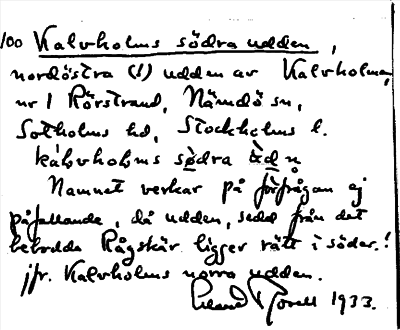 100 Kalvholms södra udden,
nordöstra (!) udden av Kalvholmen,
nr 1 Rörstrand, Nämdö sn,
Sotholms hd, Stockholms l.
kálvhòḷms sødra
Namnet verkar på förfrågan ej
påfallande, då udden, sedd från det
bebodda Rågskär ligger rätt i söder!
jfr. Kalvholms norra udden.
Erland Rosell 1933.